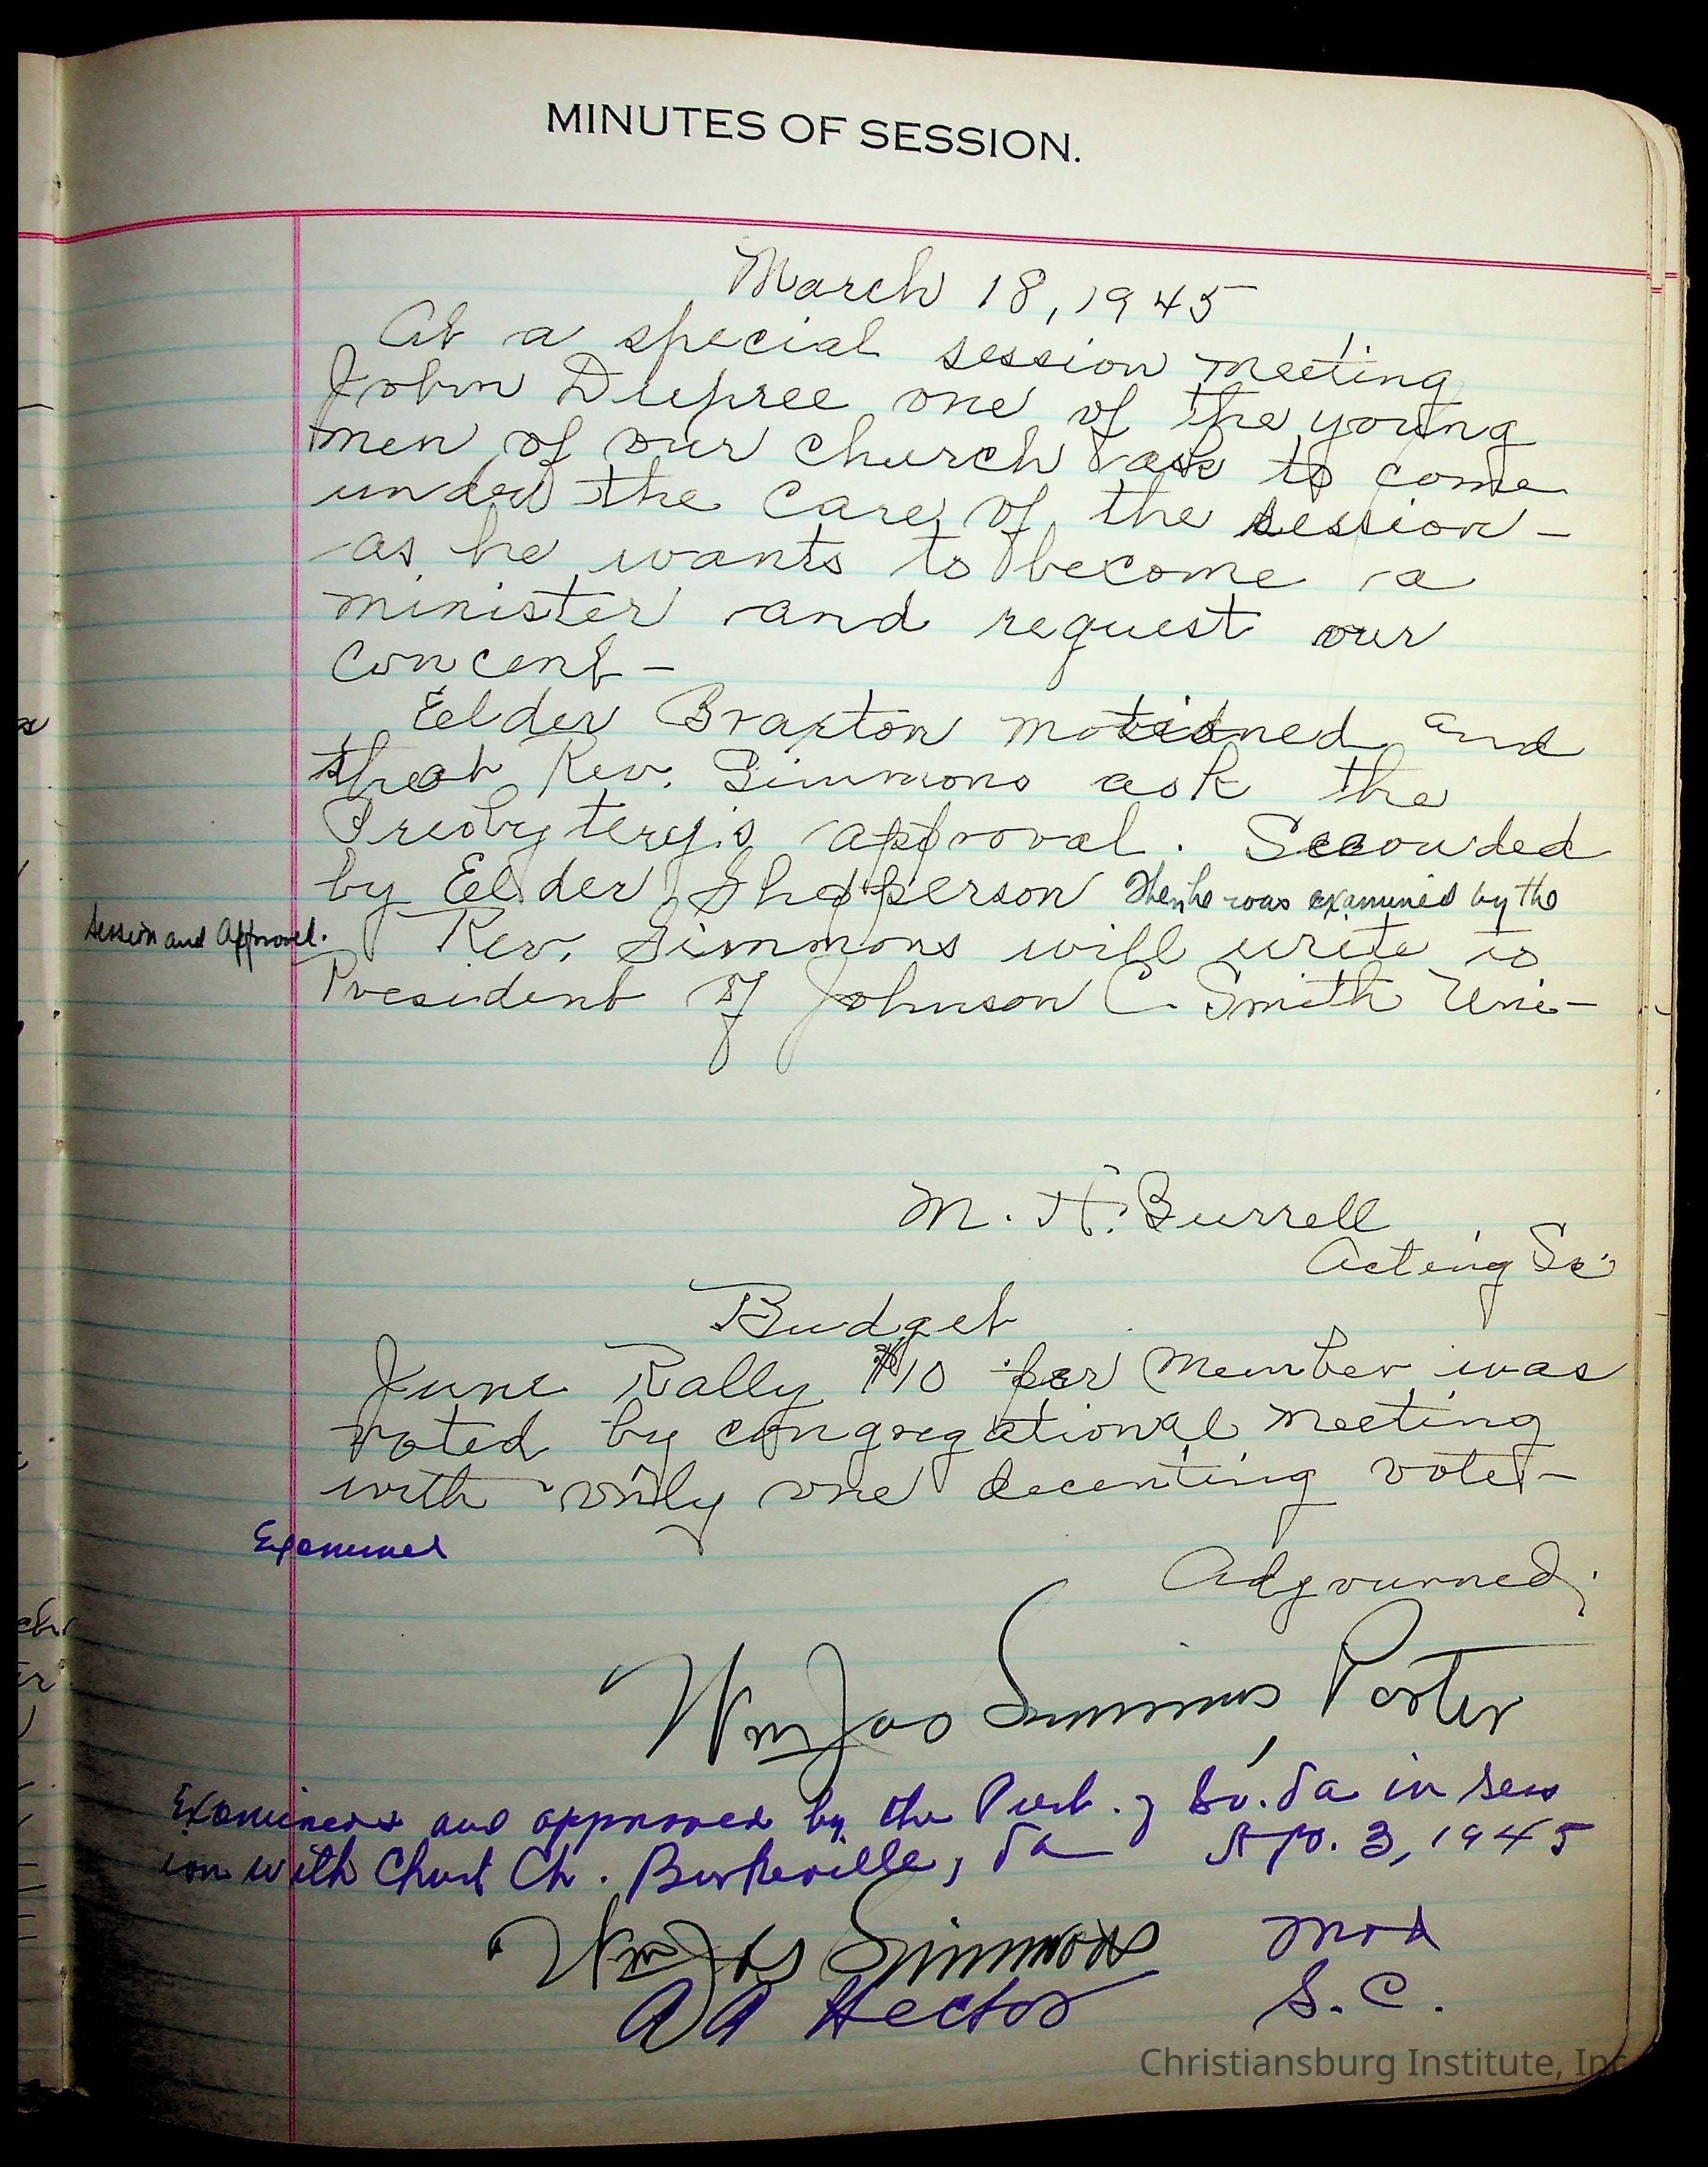 MINUTES OF SESSION.
March 18, 1945
At a special session meeting
John Dupree one of the young
men of our church ask to come
under the care of the session -
as he wants to become a
minister and request our
concent -
Eelder Braxton motioned and
that Rev. Simmons ask the
Presbytery's approval. Secounded
by Eelder Shepperson Then he was examined by the
session and Approvel.
Rev. Simmons will write to
President of Johnson C. Smith Uni-
M. H. Burrell
Acting Sc
Budget
June Rally $10 per Member was
voted by congregational meeting
with only one decenting vote -
Examined
Adgourned.
Wm Jas Simmons, Paster
Examined and approved by the Presb. of So. Va in sess
ion with Christ Ch. Burkeville, Va Apr. 3, 1945
Wm Jas Simmons Mod
A A Hector S. C.
Christiansburg Institute, Inc